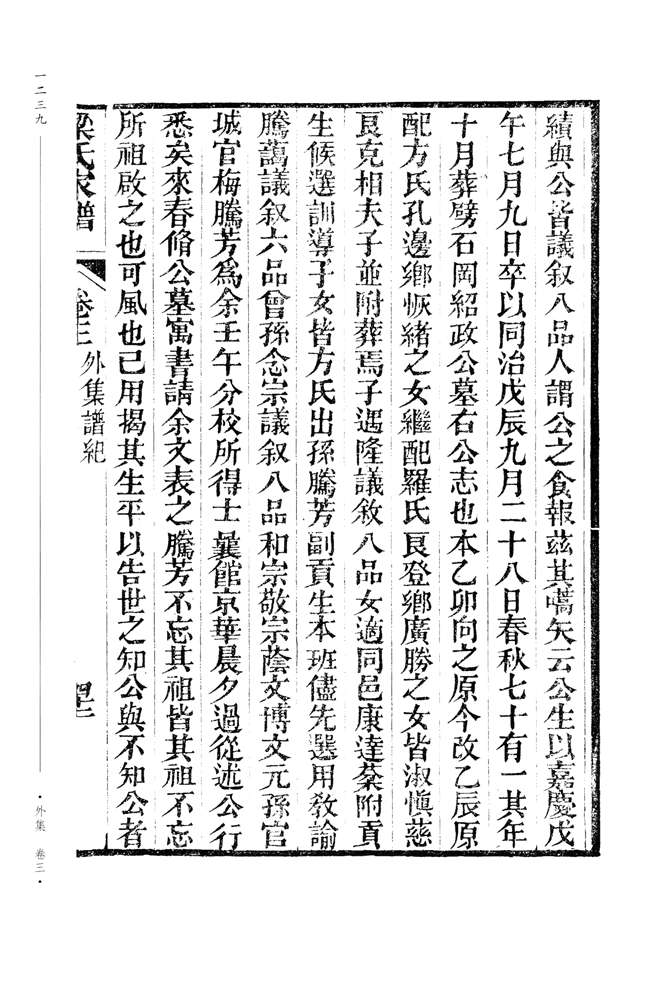 績與公皆議叙八品人謂公之食報茲其嚆矢云公生以嘉慶戊
午七月九日卒以同治戊辰九月二十八日春秋七十有一其年
十月葬劈石岡紹政公墓右公志也本乙卯向之原今改乙辰原
配方氏孔邊鄉恢緒之女繼配羅氏良登鄉廣勝之女皆淑慎慈
良克相夫子並附葬焉子遇隆議敘八品女適同邑康達棻附貢
生候選訓導子女皆方氏出孫騰芳副貢生本班儘先選用敎諭
騰藹議叙六品曾孫念宗議叙八品和宗敬宗蔭文博文元孫官
珹官梅騰芳爲余壬午分校所得士曩館京華晨夕過從述公行
悉矣來春脩公墓寓書請余文表之騰芳不忘其祖皆其祖不忘
所祖啟之也可風也已用揭其生平以告世之知公與不知公者
梁氏家譜 卷三 外集譜紀
一二三九
·外集 卷三·